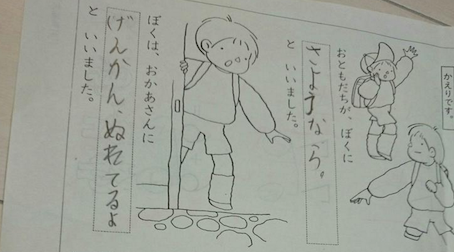 かえりです。
おともだちが、ぼくに
さようなら。
と いいました。
ぼくは、おかあさんに
げんかん、ぬれてるよ
と いいました。